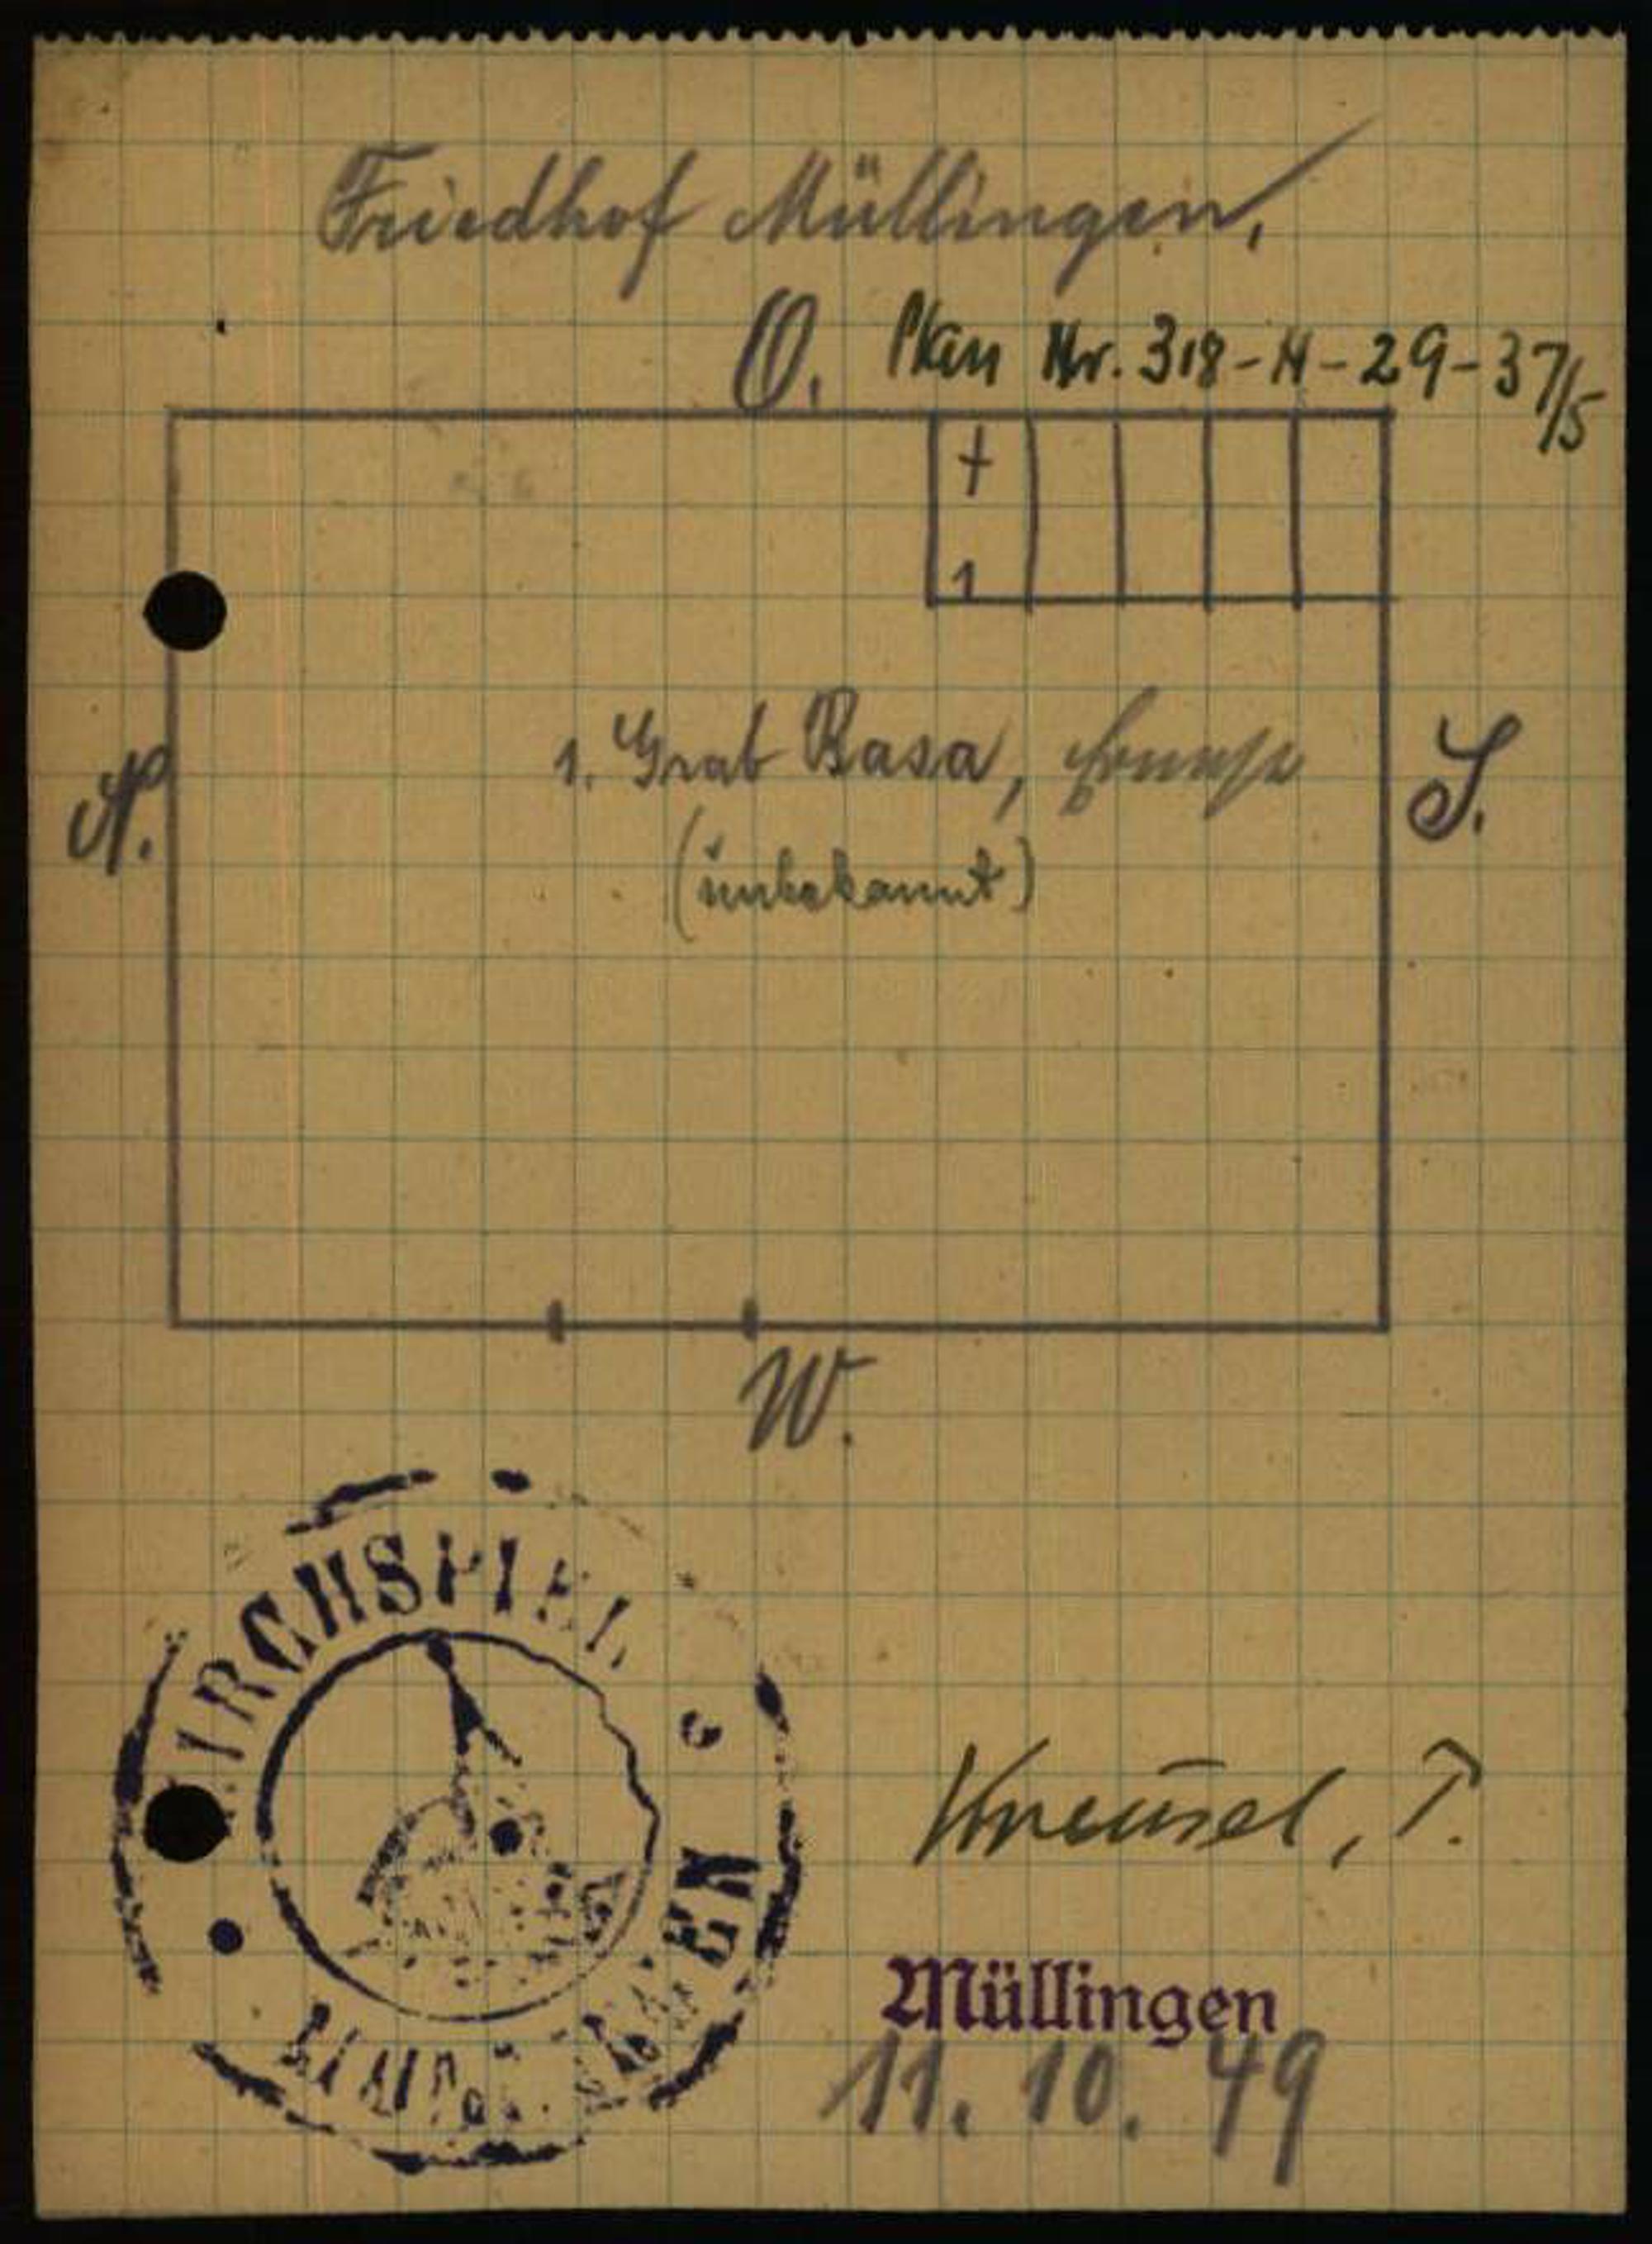 Friedhof Müllingen,
O. Plan Nr. 318-H-29-37/5
+
1
N.
1. Grab Basa,
(unbekannt)
S.
W.
KIRCHSPIEL
Müllingen
11. 10. 49